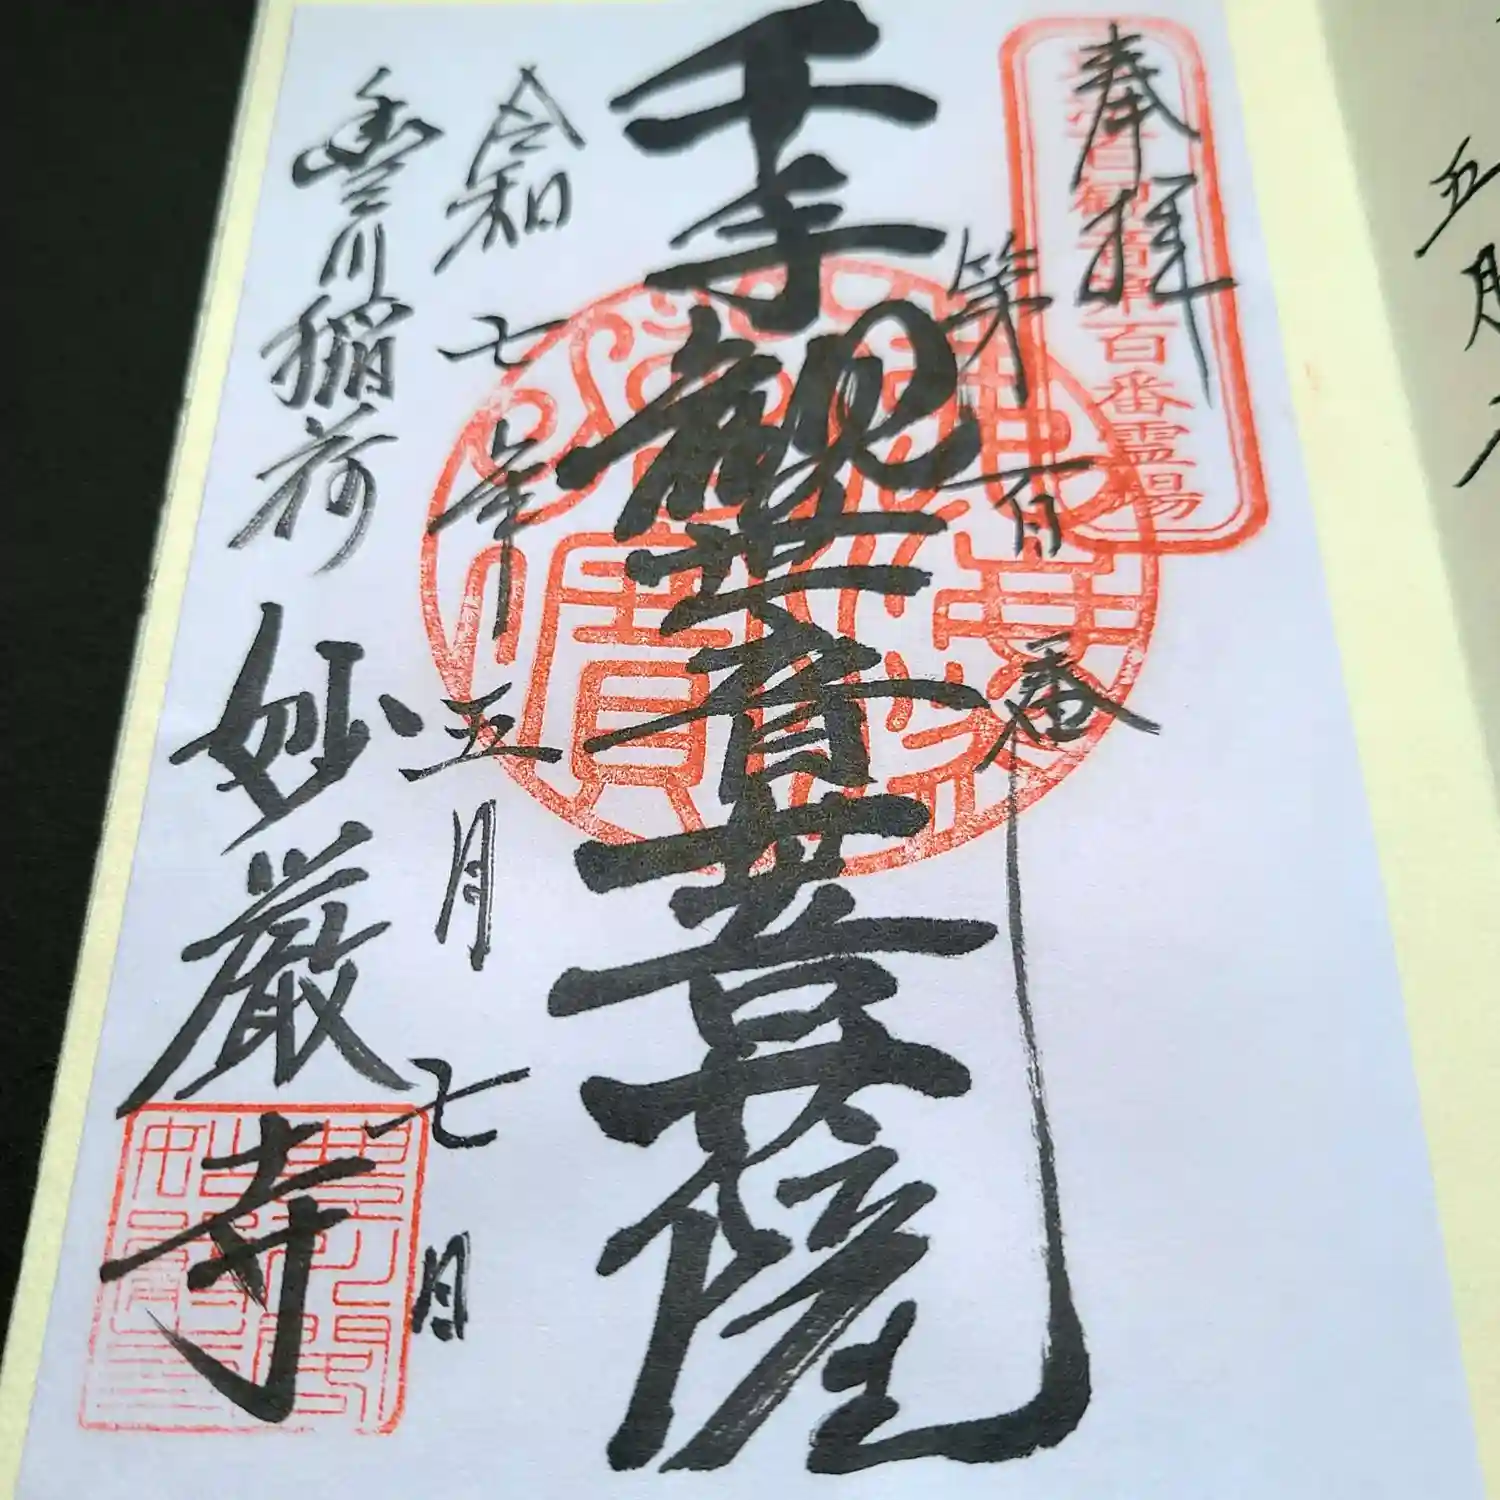 五月
奉拝
百観音第百番霊場
第百番
千手観世音菩薩
令和七年五月七日
豊川稲荷
妙厳寺